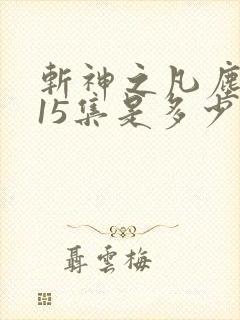 斬神之凡塵
15集是多少
聶雲梅